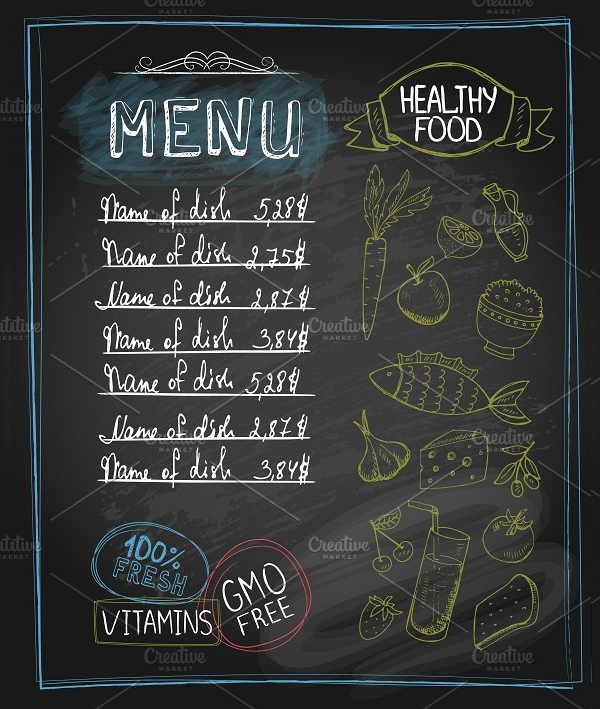 MENU
Name of dish 5,28$
Name of dish 2,75$
Name of dish 2,87$
Name of dish 3,84$
Name of dish 5,28$
Name of dish 2,87$
Name of dish 3,84$
HEALTHY
FOOD
100%
FRESH
VITAMINS
GMO
FREE
Creative
MARKET